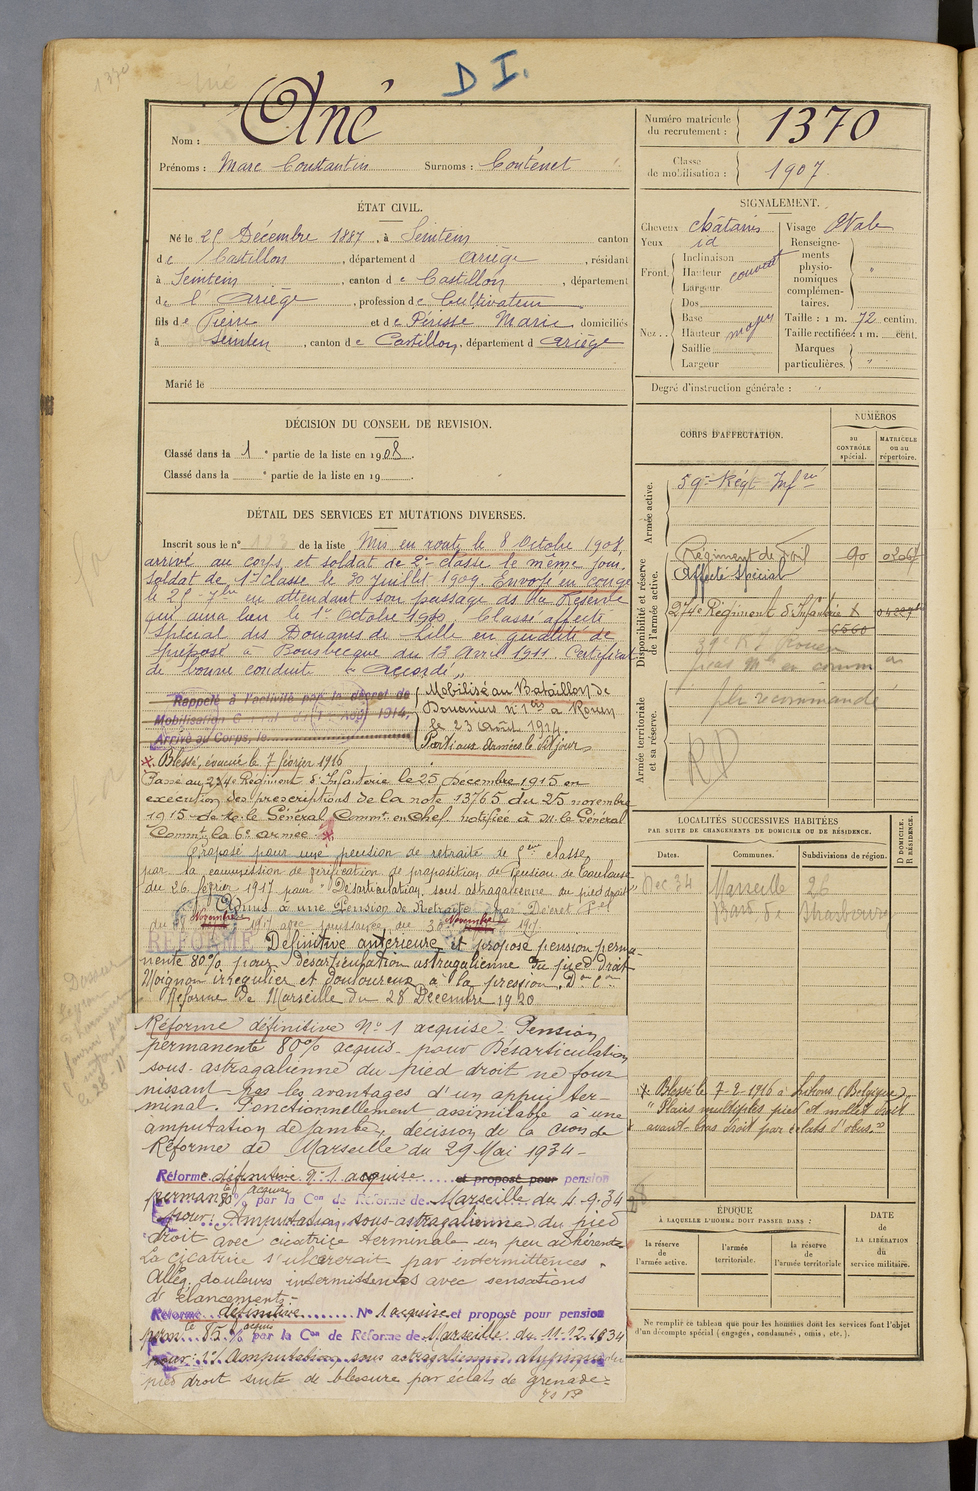 1370
D I.
Nom : Ané
Prénoms : Marc Constantin Surnoms : Conténet
Numéro matricule du recrutement : 1370
Classe de mobilisation : 1907
ÉTAT CIVIL.
Né le 25 Décembre 1887, à Sentein canton
de Castillon, département d Ariège, résidant
à Sentein, canton de Castillon, département
de l'Ariège, profession de Cultivateur
fils de Pierre et de Périsse Marie domiciliés
à Sentein, canton de Castillon, département d Ariège
Marié le
SIGNALEMENT.
Cheveux châtains Visage Ovale
Yeux id
Front. Inclinaison Hauteur Largeur couvert
Nez.. Dos Base Hauteur Saillie Largeur moyen
Renseignements physionomiques complémentaires. "
Taille : 1 m. 72 centim.
Taille rectifiée : 1 m. cent.
Marques particulières. "
Degré d'instruction générale :
DÉCISION DU CONSEIL DE REVISION.
Classé dans la 1e partie de la liste en 1908.
Classé dans la e partie de la liste en 19
CORPS D'AFFECTATION.
NUMÉROS
au CONTRÔLE spécial.
MATRICULE ou au répertoire.
Armée active.
59e Régt Infrie
Disponibilité et réserve de l'armée active.
Affecté Spécial
274e Régiment d'Infanterie X
6560
Armée territoriale et sa réserve.
RD
DÉTAIL DES SERVICES ET MUTATIONS DIVERSES.
Inscrit sous le n° de la liste Mis en route le 8 Octobre 1908,
arrivé au corps et soldat de 2e classe le même jour.
Soldat de 1re classe le 30 Juillet 1909. Envoyé en congé
le 25 7bre en attendant son passage ds la Réserve
qui aura lieu le 1er Octobre 1910. Classé affecté
spécial des Douanes de Lille en qualité de
préposé à Bousbecque du 13 Avril 1911. Certificat
de bonne conduite "Accordé"
Rappelé à l'activité par le décret de
Mobilisation Août 1914,
Arrivé au Corps, le
Mobilisé au Bataillon de
Douaniers n° 1 à Rouen
le 23 Août 1914
Parti aux armées le dit jour
Blessé, évacué le 7 février 1916
Passé au 274e Régiment d'Infanterie le 25 Décembre 1915 en
exécution des prescriptions de la note 13765 du 25 novembre
1915 de M. le Général Commt en Chef notifiée à M. le Général
Commt la 6e armée
Proposé pour une pension de retraite de 5eme classe
par la commission de vérification de proposition de Pension de Toulouse
du 26 février 1917 pour "Désarticulation sous astragalienne du pied droit"
Admis à une Pension de Retraite par Décret
du Novembre 1917 avec jouissance du 30 Novembre 1917
RÉFORME Définitive antérieure et proposé pension perma
nente 80% pour désarticulation astragalienne du pied droit
Moignon irrégulier et douloureux à la pression. Don Con
Réforme de Marseille du 28 Décembre 1920
Réforme définitive N° 1 acquise - Pension
permanente 80% acquis - pour Désarticulation
sous-astragalienne du pied droit ne four
nissant pas les avantages d'un appui ter-
minal. Fonctionnellement assimilable à une
amputation de jambe, décision de la Cion de
Réforme de Marseille du 29 Mai 1934 -
Réforme définitive n° 1 acquise et proposé pour pension
permante % acquise par la Con de Réforme de Marseille du 4-9-34
pour : Amputation sous-astragalienne du pied
droit avec cicatrice terminale un peu adhérente
La cicatrice s'ulcérerait par intermittences.
Allég. douleurs intermittentes avec sensations
d'élancements -
Réforme définitive N° 1 acquise et proposé pour pension
permte 85% acquis par la Con de Réforme de Marseille du 11-12-1934
pour : 1° Amputation sous astragalienne
pied droit suite de blessure par éclats de grenade =
LOCALITÉS SUCCESSIVES HABITÉES
PAR SUITE DE CHANGEMENTS DE DOMICILE OU DE RÉSIDENCE.
Dates. Communes. Subdivisions de région. D DOMICILE. R RÉSIDENCE.
Dec 34 Marseille 26
Strasbourg
X Blessé le 7-2-1916 à (Belgique).
"Plaies multiples pied et mollet droit
avant-bras droit par éclats d'obus."
ÉPOQUE
À LAQUELLE L'HOMME DOIT PASSER DANS :
la réserve de l'armée active.
l'armée territoriale.
la réserve de l'armée territoriale
DATE de LA LIBÉRATION du service militaire.
Ne remplir ce tableau que pour les hommes dont les services font l'objet
d'un décompte spécial (engagés, condamnés, omis, etc.).